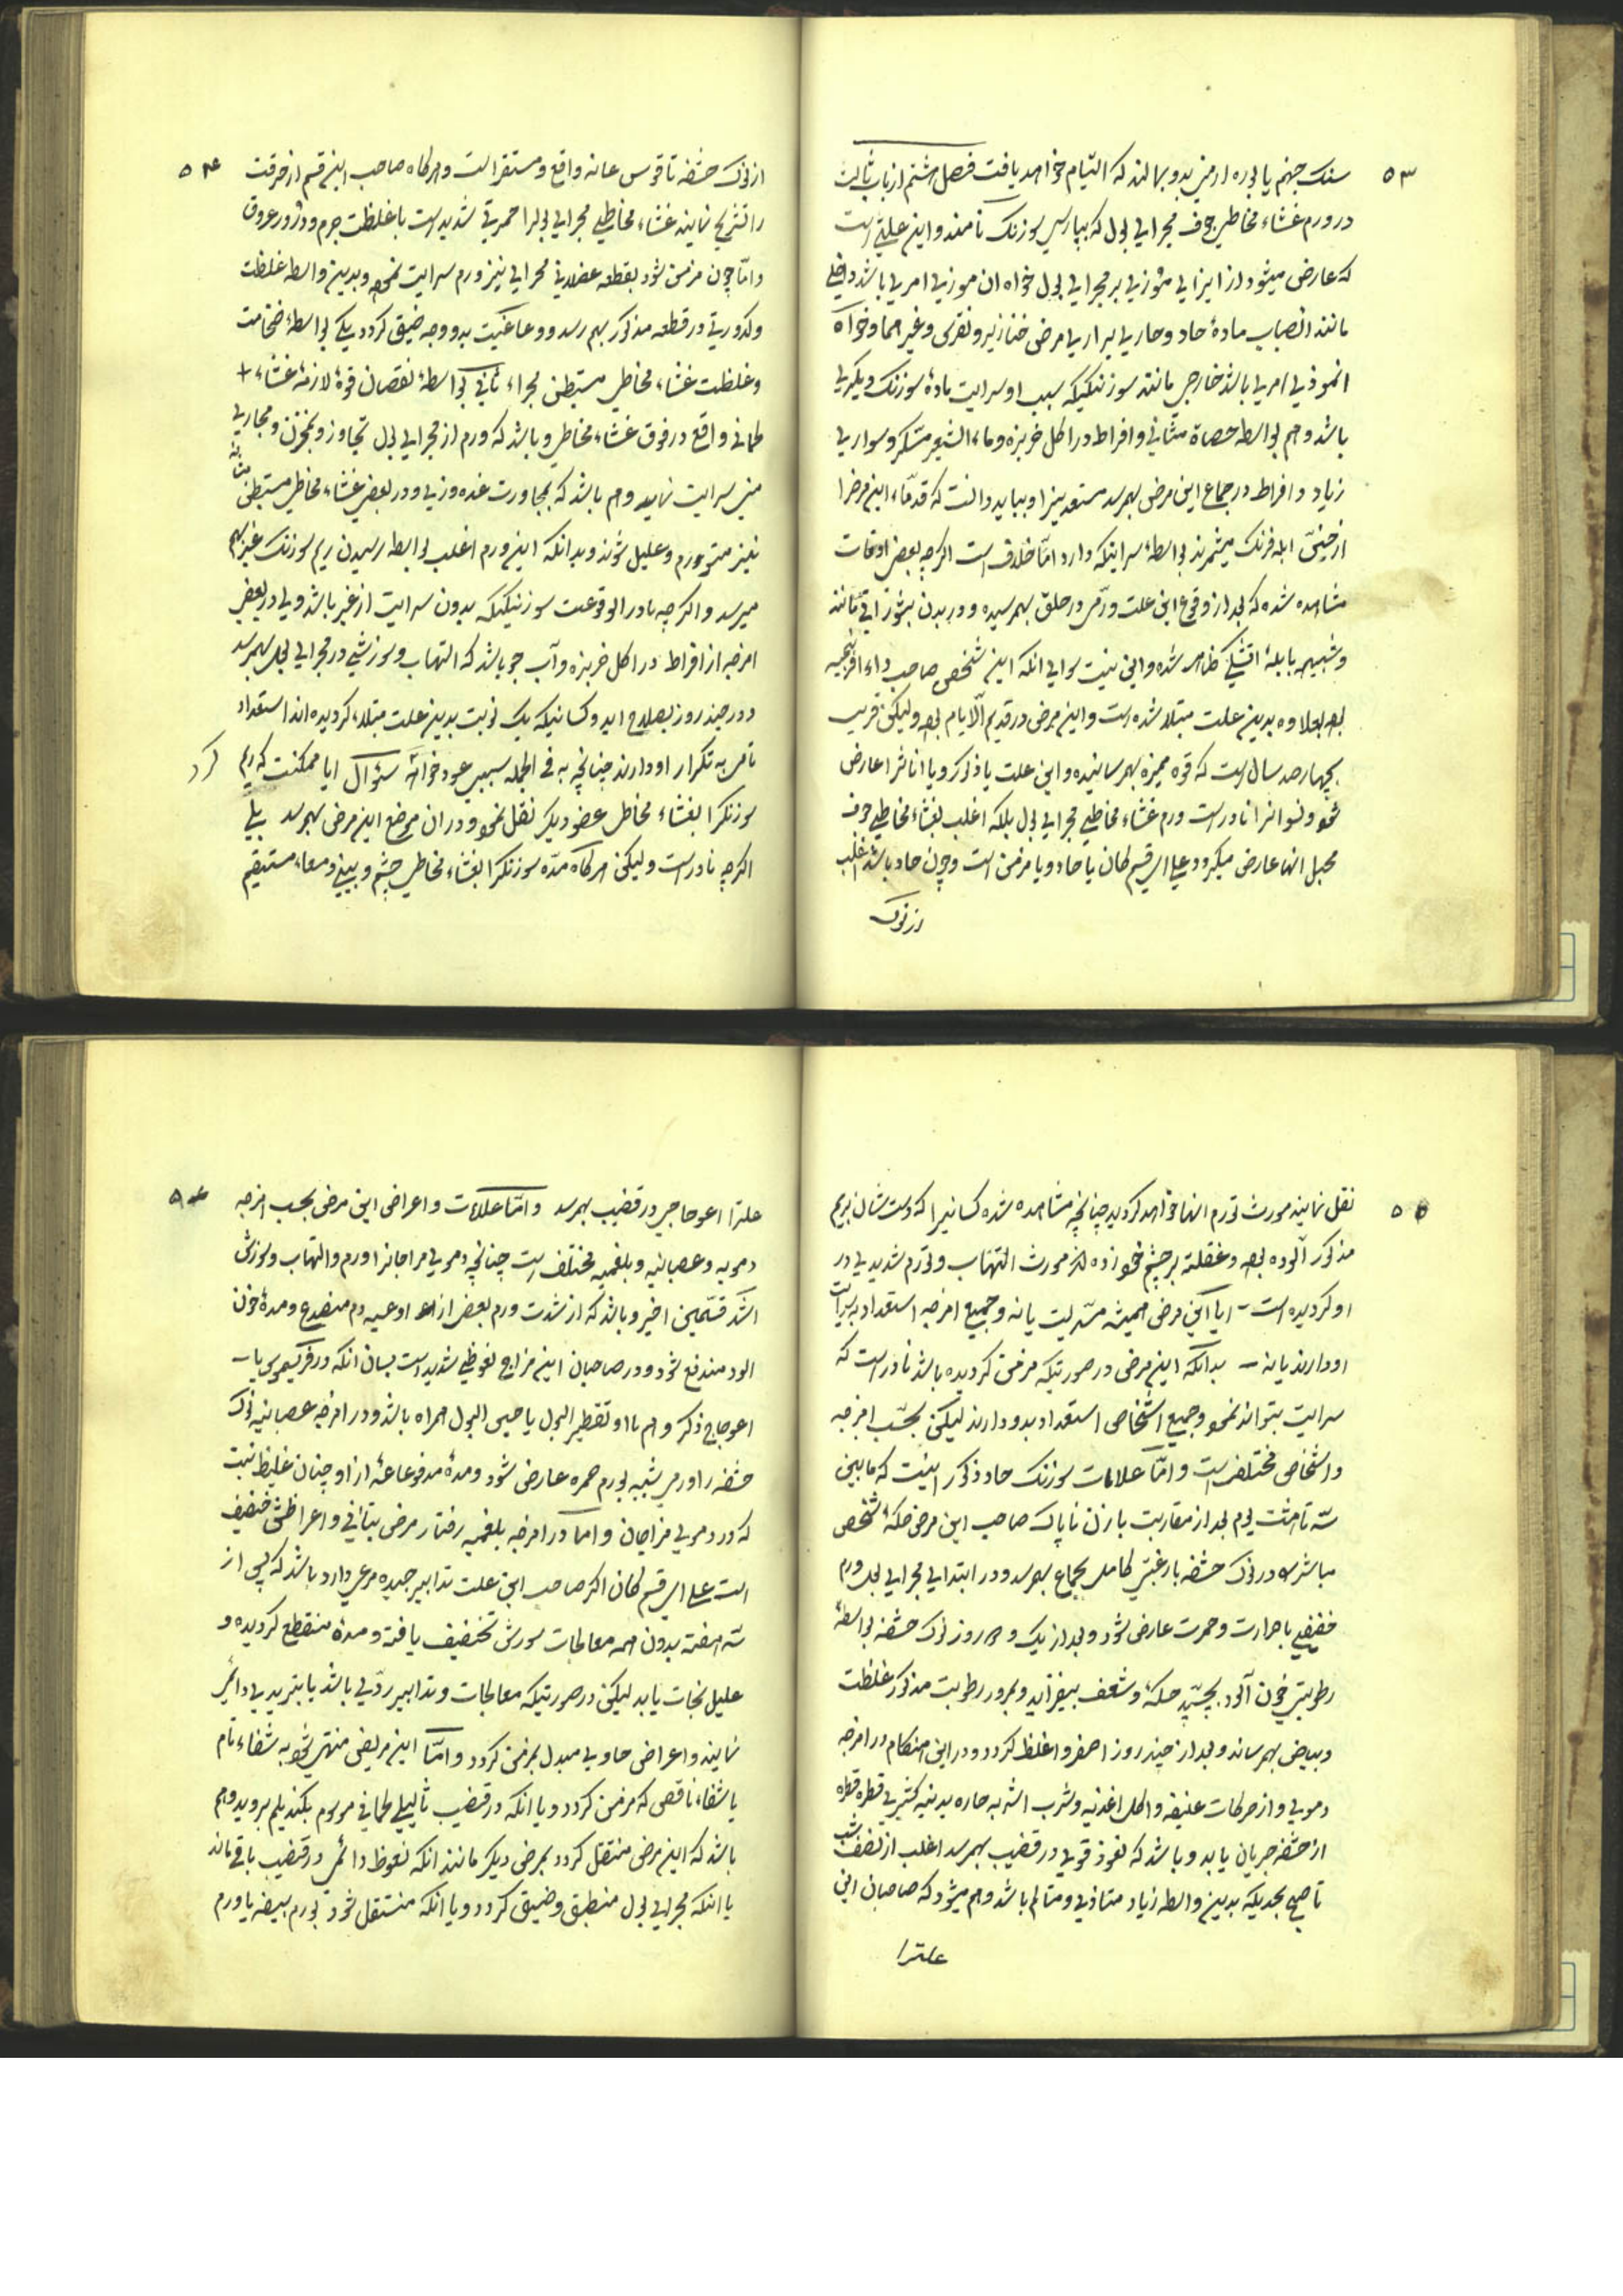 ۵۳
سنک جهنم یا بوره ارمنی بدو بمالند که التیام خواهد یافت فصل هشتم از باب ثالث
در ورم غشاء مخاطی جوف مجرای بول که بپارسی سوزنک نامند و این علتی است
که عارض میشود از ایذای موذی بر مجرای بول خواه ان موذی امری باشد داخلی
مانند انصباب مادهٔ حاد و حاریا سراریا مرض خنازیر و نقرس و غیرهما و خواه
انموذی امری باشد خارجی مانند سوزنکیکه سبب او سرایت مادهٔ سوزنک دیکری
باشد و هم بواسطه حصاة مثانی و افراط در اکل خربزه و ماء الشعیر مسکر و سواری
زیاد و افراط در جماع این مرض بهمرسد مستعدینرا و بباید دانست که قدماء این مرضرا
از خبیثی ابله فرنک میشمرند بواسطهٔ سرایتیکه دارد اما خلاف است اکرچه بعضی اوقات
مشاهده شده که بعد از وقوع این علت ورمی در حلق بهمرسیده و در بدن بثوراتی مانند
و شبیهه بابلهٔ اتشکی ظاهر شده و این نیست سوای انکه این شخص صاحب داء افرنجیه
بوده بعلاوه بدین علت مبتلا شده است و این مرض در قدیم الایام بوده ولیکن قریب
بچهارصد سال است که قوه ممیزه بهمرسانیده و این علت یا ذکور و یا اناثرا عارض
شود و نسوانرا نادر است ورم غشاء مخاطی مجرای بول بلکه اغلب بغشاء مخاطی جوف
مهبل انها عارض میکردد علی ای قسم کان یا حاد و یا مزمن است و چون حاد باشد اغلب
از نوک
۵۴
از نوک حشفه تا قوس عانه واقع و مستقر است و هرکاه صاحب این قسم از حرقت
را تشریح نمایند غشاء مخاطی مجرای بولرا حمرتی شدید است با غلظت جرم و در عروق
و اما چون مزمن شود بقطعه عضلانی مجرای نیز ورم سرایت نموده و بدین واسطه غلظت
و کدورتی در قطعه مذکور بهم رسد و وعا عنیت بدو وجه ضیق کردد یکی بواسطهٔ ضخامت
و غلظت غشاء مخاطی مستبطن مجراء ثانی بواسطهٔ نقصان قوهٔ لازمهٔ غشاء +
لحمانی واقع در فوق غشاء مخاطی و باشد که ورم از مجرای بول تجاوز و بمخزن و مجاری
منی سرایت نماید و هم باشد که بمجاورت غده وزی و در بعضی غشاء مخاطی مستبطن مثانه
نیز متورم و علیل شوند و بدانکه این ورم اغلب بواسطه رسیدن ریم سوزنک غیر بهم
میرسد و اکرچه نادر الوقوعست سوزنکیکه بدون سرایت از غیر باشد ولی در بعضی
امزجه از افراط در اکل خربزه و آب جو باشد که التهاب و سوزشی در مجرای بول بهمرسد
و در چند روز بصلاح اید و کسانیکه یک نوبت بدین علت مبتلاء کردیده اند استعداد
تامی به تکرار او دارند چنانچه به فی الجمله سببی عود خواهد سؤال ایا ممکنست که ریم کرد
سوزنکرا بغشاء مخاطی عضو دیکر نقل نمود و در ان موضع این مرض بهمرسد بلی
اکرچه نادر است ولیکن هرکاه مدّه سوزنکرا بغشاء مخاطی چشم و بینی و معاء مستقیم
۵۵
نقل نمایند مورث تورم انها خواهد کردید چنانچه مشاهده شده کسانیرا که دست شان بریم
مذکور آلوده بوده و غفلة بر چشم خود زده اند مورث التهاب و تورم شدیدی در
او کردیده است - ایا این مرض همیشه مسریست یا نه و جمیع امزجه استعداد به سرایت
او دارند یا نه - بدانکه این مرض در صورتیکه مزمن کردیده باشد نادر است که
سرایت بتواند نمود و جمیع اشخاص استعداد بدو دارند لیکن بحسب امزجه
و اشخاص مختلف است و اما علامات سوزنک حاد ذکور اینست که مابین
سه تا هشت یوم بعد از مقاربت با زن ناپاک صاحب این مرض حکهٔ شخص
مباشر را در نوک حشفه با رغبتی کامل بجماع بهمرسد و در ابتدای مجرای بول ورم
خفیفی با حرارت و حمرت عارض شود و بعد از یک و دو روز نوک حشفه بواسطهٔ
رطوبتی خون آلود بچسبد حکه و شعف بیفزاید و بمرور رطوبت مذکور غلظت
و بیاض بهمرساند و بعد از چند روز اصفر و اغلظ کردد و در این هنکام در امزجه
دموی و از حرکات عنیفه و اکل اغذیه و شرب اشربه حاره بدنیه کثیری قطره قطره
از حشفه جریان یابد و باشد که نعوذ قوی در قضیب بهمرسد اغلب از نصف شب
تا صبح بحدیکه بدین واسطه زیاد متاذی و متالم باشد و هم میشود که صاحبان این
علترا
۵۶
علترا اعوجاجی در قضیب بهمرسد و اما علامات و اعراض این مرض بحسب امزجه
دمویه و عصبانیه و بلغمیه مختلف است چنانچه دموی مزاجانرا ورم و التهاب و سوزش
اشد قسمین اخیر و باشد که از شدت ورم بعضی از اوعیه دم منصدع و مدهٔ خون
الود مندفع شود و در صاحبان این مزاج نعوظی شدید است بسان انکه در فریسموس یا
اعوجاج ذکر و هم با او تقطیر البول یا حبس البول همراه باشد و در امزجه عصبانیه نوک
حشفه را ورمی شبیه بورم حمره عارض شود و مدهٔ مدفوعاعهٔ از او چنان غلیظ نیست
که در دموی مزاجان و اما در امزجه بلغمیه رفتار مرض بتانی و اعراضش خفیف
است علی ای قسم کان اکر صاحب این علت تدابیر جیده مرعی دارد باشد که پس از
سه هفته بدون همه معالجات سوزش تخفیف یافته و مدهٔ منقطع کردیده و
علیل نجات یابد لیکن در صورتیکه معالجات و تدابیر ردی باشد یا بتبریدی دائمی
نمایند و اعراض حاد وی مبدل بمزمن کردد و اما این مریض منتهی شود به شفاء تام
یا شفاء ناقص که مزمن کردد و یا انکه در قضیب ثالیلی لحمانی موسوم بکندیلم بروید و هم
باشد که این مرض منتقل کردد بمرض دیکر مانند انکه نعوظ دائمی در قضیب باقی ماند
یا انکه مجرای بول منطبق و ضیق کردد و یا انکه منتقل شود بورم بیضه یا ورم